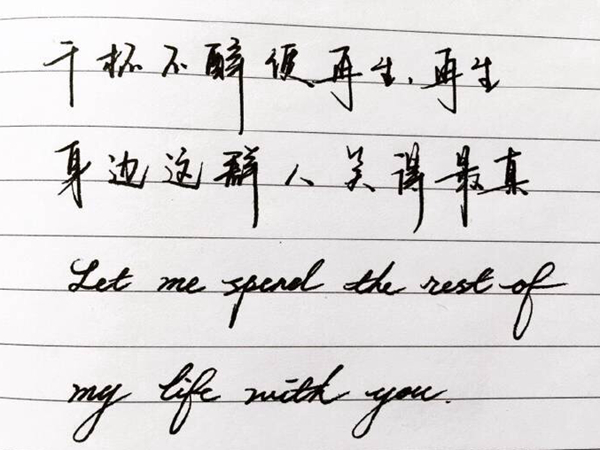 干杯不醉便再生、再生
身边这群人笑得最真
Let me spend the rest of
my life with you.